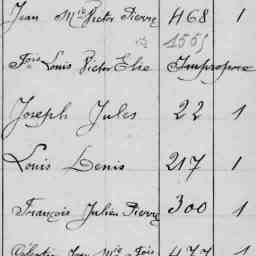 Jean Mie Victor Pierre 468 1
1555
Fois Louis Victor Elie Impropore
Joseph Jules 22 1
Louis Denis 217 1
François Julien Pierre 300 1
Célestin Jean Mie Fois 477 1